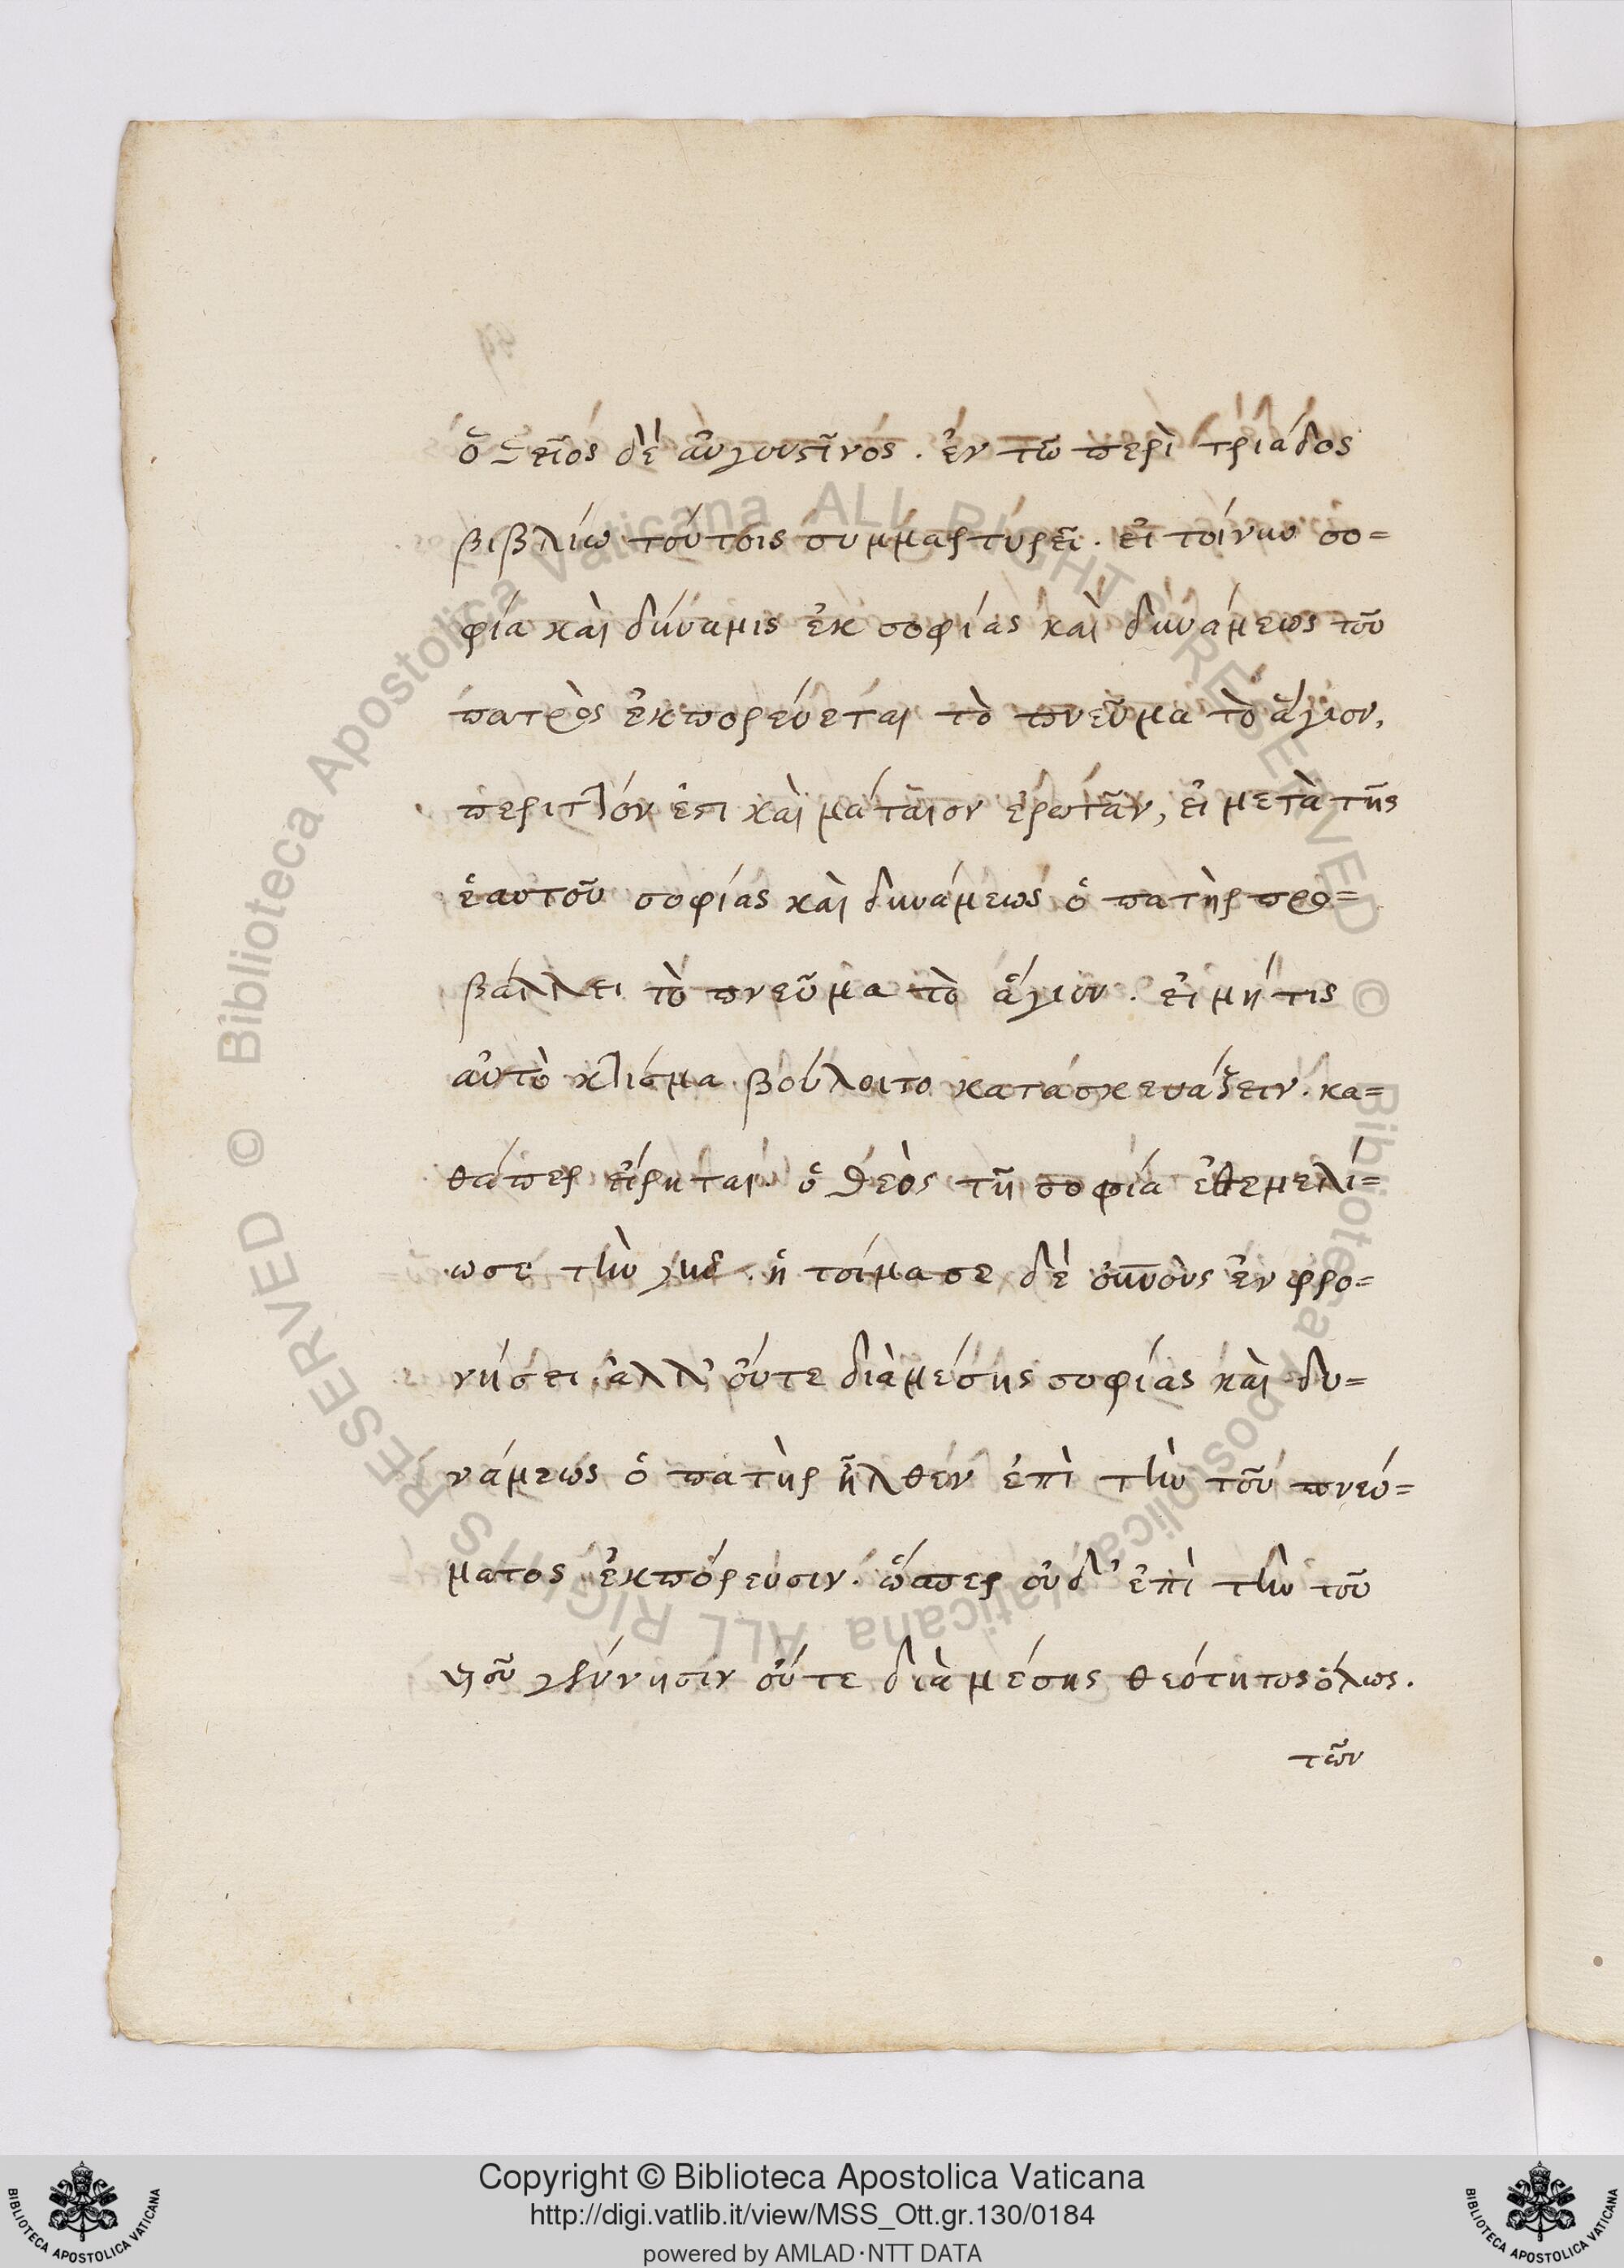 ὁ θεῖος δὲ αὐγουστῖνος. ἐν τῶ περὶ τριάδος
βιβλίω τούτοις συμμαρτυρεῖ. εἰ τοίνυν σο=
φία καὶ δύναμις ἐκ σοφίας καὶ δυνάμεως τοῦ
πατρὸς ἐκπορεύεται τὸ πνεῦμα τὸ ἅγιον,
περιττόν ἐστι καὶ μάταιον ἐρωτᾶν, εἰ μετὰ τῆς
ἑαυτοῦ σοφίας καὶ δυνάμεως ὁ πατὴρ προ=
βάλλει τὸ πνεῦμα τὸ ἅγιον. εἰ μή τις
αὐτὸ κτίσμα βούλοιτο κατασκευάζειν. κα=
θάπερ εἴρηται. ὁ θεὸς τῆ σοφία ἐθεμελί=
ωσε τὴν γῆν. ἡτοίμασε δὲ οὐνοὺς ἐν φρο=
νήσει. ἀλλ' οὔτε διὰ μέσης σοφίας καὶ δυ=
νάμεως ὁ πατὴρ ἦλθεν ἐπὶ τὴν τοῦ πνεύ=
ματος ἐκπόρευσιν. ὥσπερ οὐδ' ἐπὶ τὴν τοῦ
υἱοῦ γέννησιν οὔτε διὰ μέσης θεότητος ὅλως.
τῶν
Copyright © Biblioteca Apostolica Vaticana
http://digi.vatlib.it/view/MSS_Ott.gr.130/0184
powered by AMLAD·NTT DATA
BIBLIOTECA APOSTOLICA VATICANA
BIBLIOTECA APOSTOLICA VATICANA
© Biblioteca Apostolica Vaticana ALL RIGHTS RESERVED
© Biblioteca Apostolica Vaticana ALL RIGHTS RESERVED